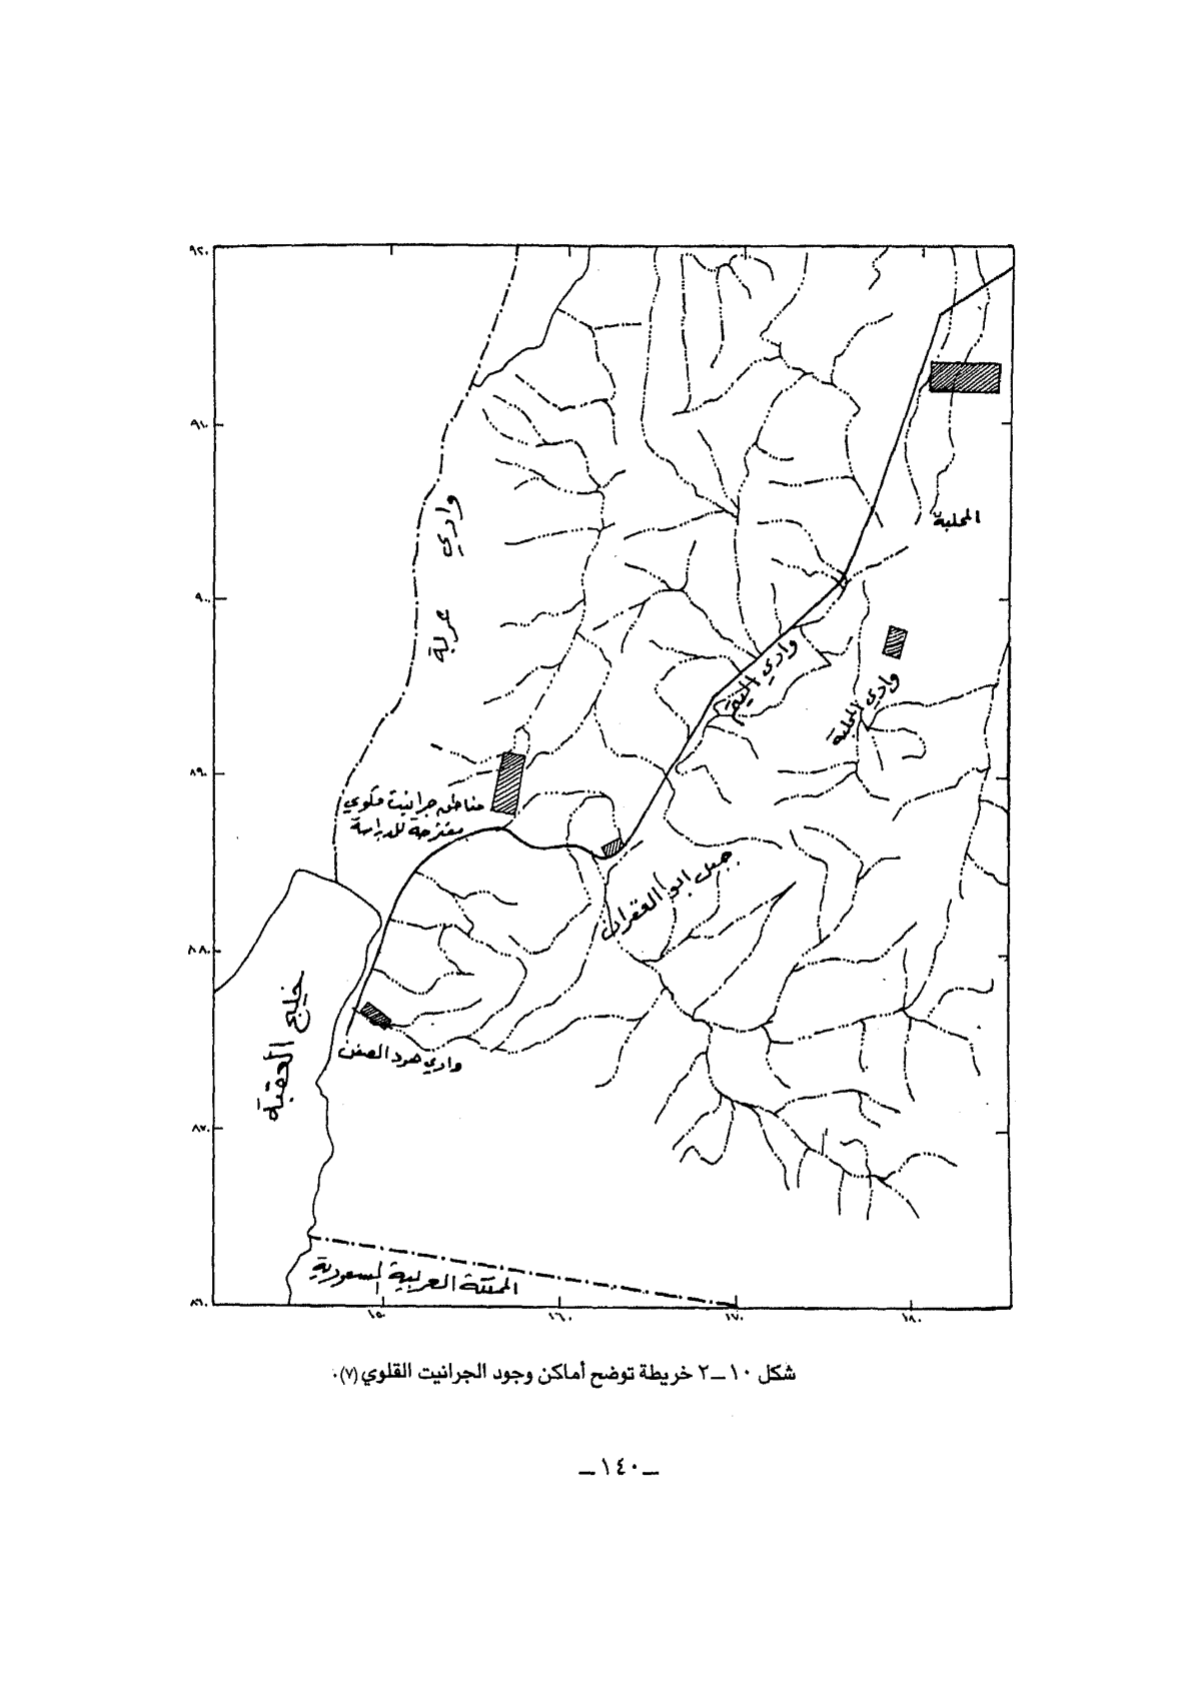 ٩٢٠
٩١٠
٩٠٠
٨٩٠
٨٨٠
٨٧٠
٨٦٠
١٥٠
١٦٠
١٧٠
١٨٠
المحلبة
وادي عربة
وادي اليتم
وادي المحلبة
مناطق جرانيت قلوي
مقترحة للدراسة
جبل ابو العقران
خليج العقبة
وادي
المملكة العربية السعودية
شكل ١٠–٢ خريطة توضح أماكن وجود الجرانيت القلوي (٧).
– ١٤٠ –